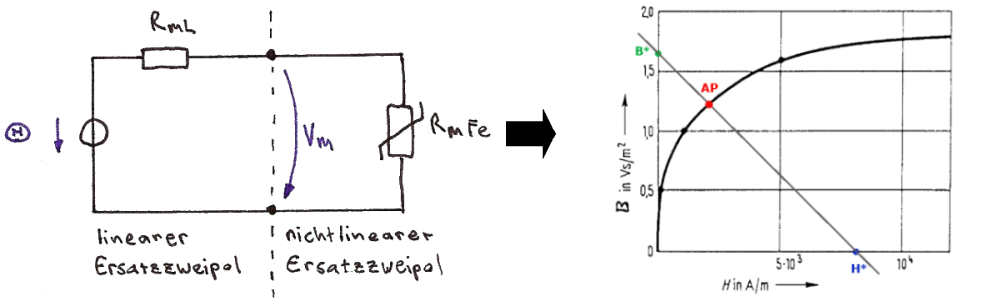 RmL
Θ
Vm
RmFe
linearer
Ersatzzweipol
nichtlinearer
Ersatzzweipol
2,0
B*
1,5
AP
1,0
0,5
0
B in Vs/m²
5·10³
H*
10⁴
H in A/m